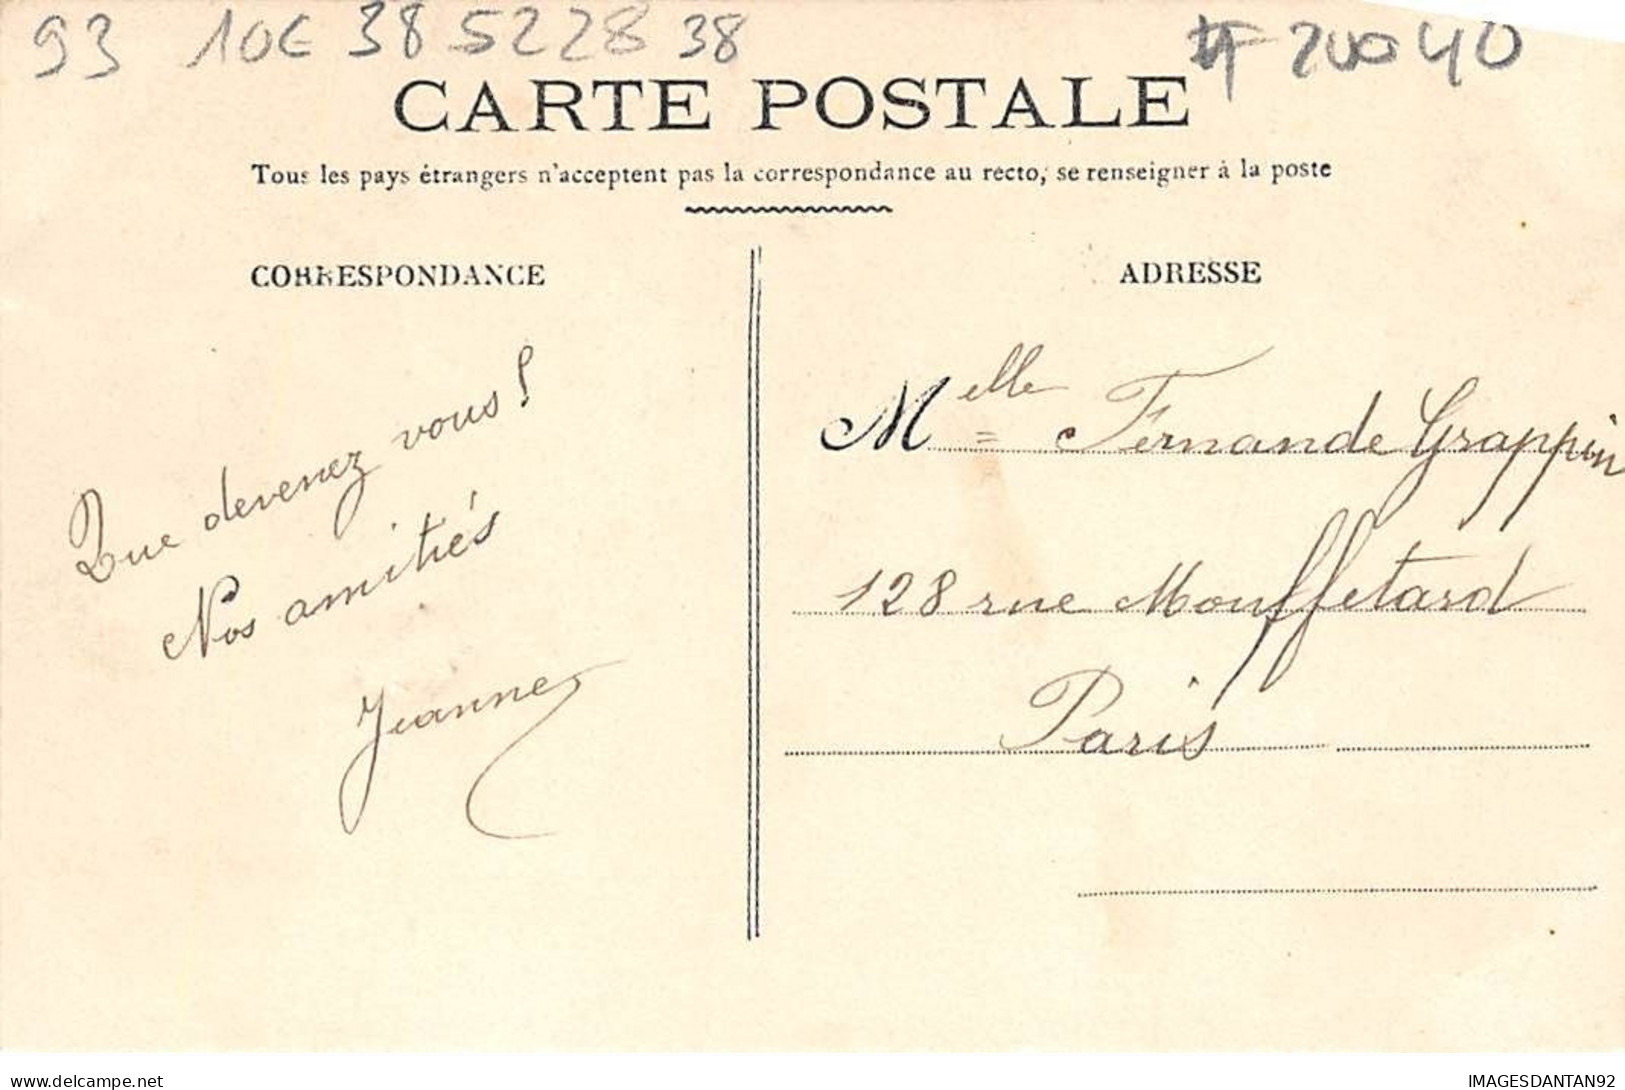 93 10€ 38 5228 38
20040
CARTE POSTALE
Tous les pays étrangers n'acceptent pas la correspondance au recto, se renseigner à la poste
CORRESPONDANCE
ADRESSE
Que devenez vous?
Nos amitiés
Jeanne
Melle Fernande Grappin
128 rue Mouffetard
Paris
delcampe.net
IMAGESDANTAN92